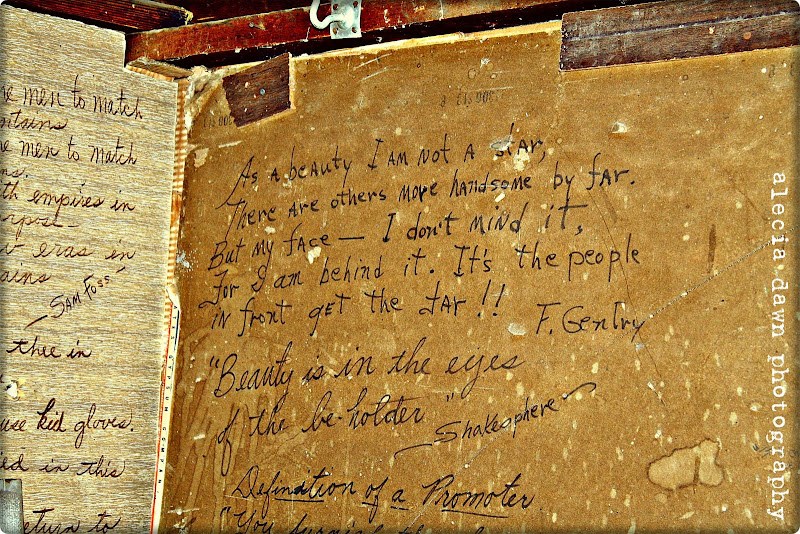 men to match
men to match
empires in
eras in
Sam Foss
thee in
use kid gloves.
in this
return to
As a beauty I am not a star,
There are others more handsome by far.
But my face — I don't mind it,
For I am behind it. It's the people
in front get the jar!!
F. Gentry
"Beauty is in the eyes
of the be-holder"
— Shakesphere
Defination of a Promoter.
"You furnish the
alecia dawn photography